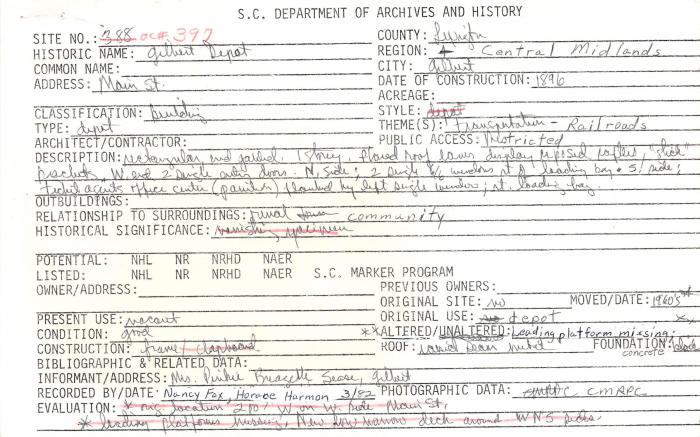 S.C. DEPARTMENT OF ARCHIVES AND HISTORY
SITE NO.: 388 OC# 397 COUNTY: Lexington
HISTORIC NAME: Gilbert Depot REGION: 4 Central Midlands
COMMON NAME: CITY: Gilbert
ADDRESS: Main St. DATE OF CONSTRUCTION: 1896
ACREAGE:
CLASSIFICATION: building STYLE: depot
TYPE: depot THEME(S): Transportation - Railroads
ARCHITECT/CONTRACTOR: PUBLIC ACCESS: restricted
DESCRIPTION: rectangular, end gabled. 1 storey, flared roof eaves display exposed rafters, "stick"
brackets. W. end 2 single doors. N. side; 2 single 6/6 windows rt of loading bay. S. side;
Ticket agents office center flanked by left single window; rt. loading bay.
OUTBUILDINGS:
RELATIONSHIP TO SURROUNDINGS: rural town community
HISTORICAL SIGNIFICANCE: vanishing specimen
POTENTIAL: NHL NR NRHD NAER
LISTED: NHL NR NRHD NAER S.C. MARKER PROGRAM
OWNER/ADDRESS: PREVIOUS OWNERS:
ORIGINAL SITE: no MOVED/DATE: 1960's*
PRESENT USE: vacant ORIGINAL USE: depot
CONDITION: good **ALTERED/UNALTERED: Loading platform missing;
CONSTRUCTION: frame/clapboard ROOF: raised seam metal FOUNDATION: concrete block
BIBLIOGRAPHIC & RELATED DATA:
INFORMANT/ADDRESS: Mrs. Sease, Gilbert
RECORDED BY/DATE: Nancy Fox, Horace Harmon 3/82 PHOTOGRAPHIC DATA: CMRPC
EVALUATION: * orig location 270' W on W. side Main St.
* loading platform missing, New low narrow deck around WNS sides.